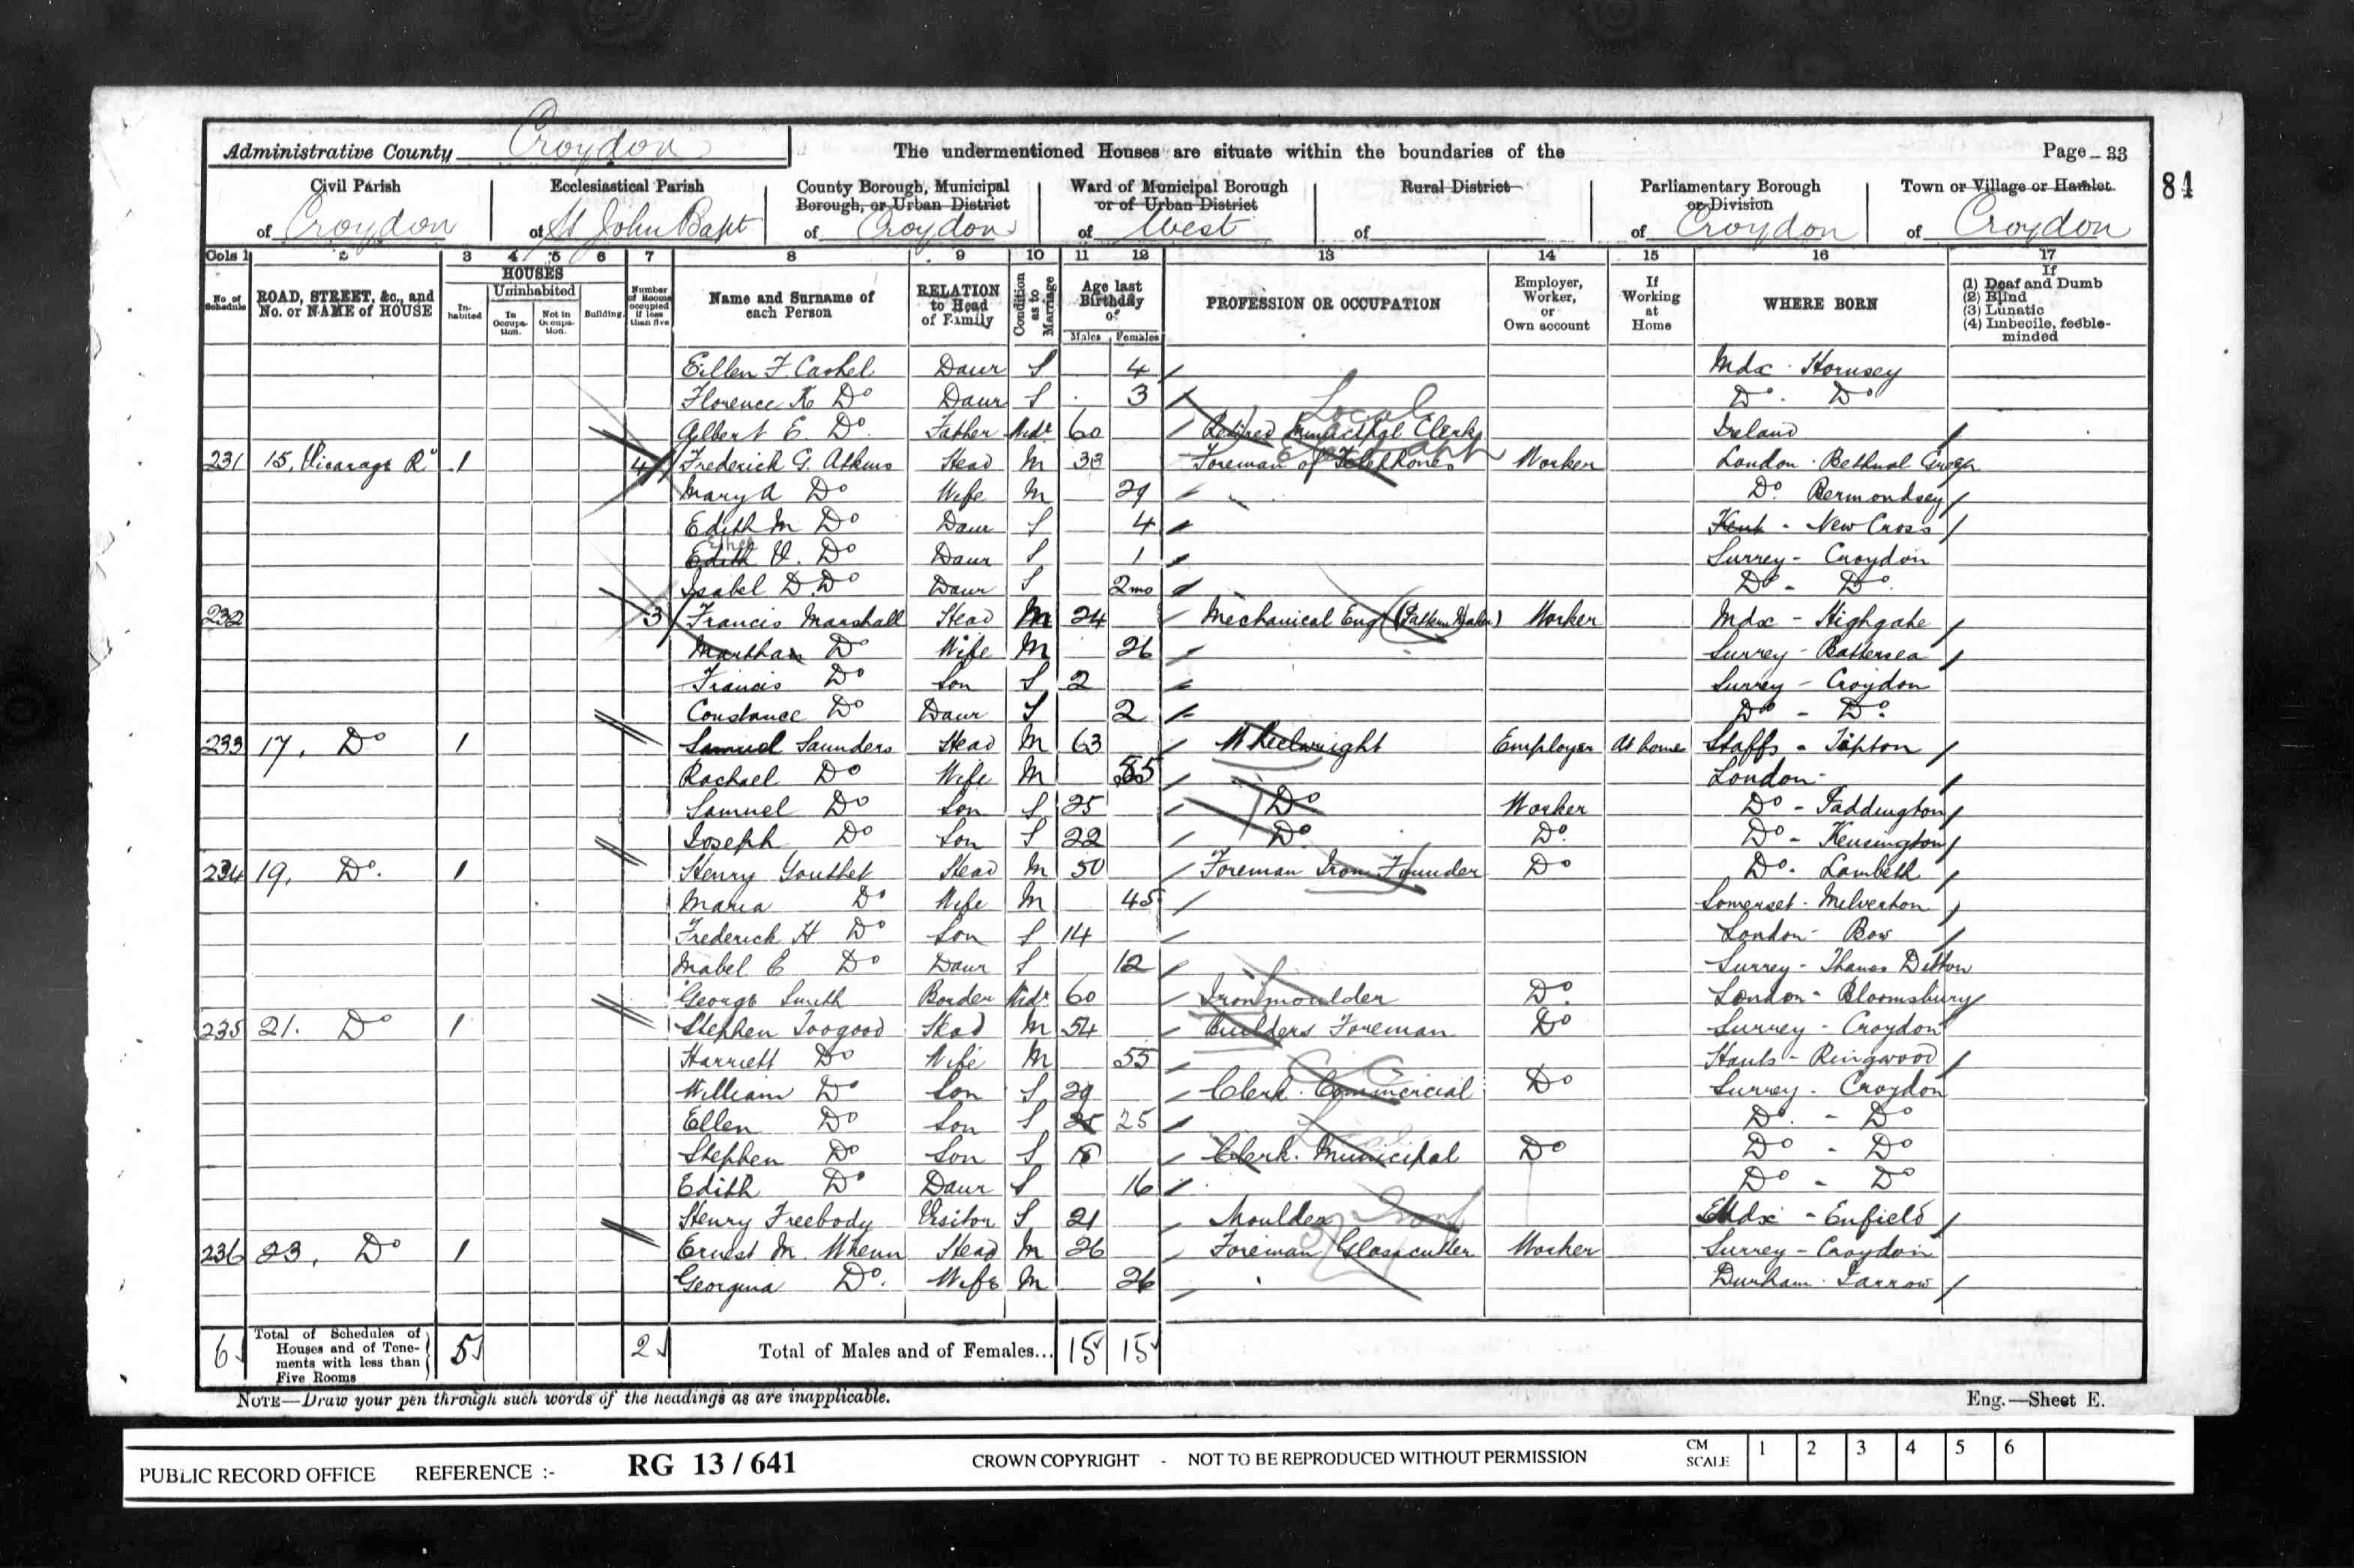 Administrative County Croydon The undermentioned Houses are situate within the boundaries of the Page 33
84
Civil Parish of Croydon Ecclesiastical Parish of St John Bapt County Borough, Municipal Borough, or Urban District of Croydon Ward of Municipal Borough or of Urban District of West Rural District of Parliamentary Borough or Division of Croydon Town or Village or Hamlet of Croydon
Cols 1 2 3 4 5 6 7 8 9 10 11 12 13 14 15 16 17
No. of Schedule ROAD, STREET, &c., and No. or NAME of HOUSE HOUSES Inhabited Uninhabited In Occupation. Not in Occupation. Building. Number of Rooms occupied if less than five Name and Surname of each Person RELATION to Head of Family Condition as to Marriage Age last Birthday of Males Females PROFESSION OR OCCUPATION Employer, Worker, or Own account If Working at Home WHERE BORN If (1) Deaf and Dumb (2) Blind (3) Lunatic (4) Imbecile, feeble-minded
Eillen F. Cashel Daur S 4 Mdx - Hornsey
Florence K Do Daur S 3 Do. Do
Albert E. Do. Father Widr 60 Retired Municipal Clerk Local Ireland
231 15, Vicarage Rd 1 4 Frederick G. Atkins Head M 33 Foreman of Telephones Worker London - Bethnal Green
Mary A Do Wife M 29 Do. Bermondsey
Edith M Do Daur S 4 Kent - New Cross
Edith Ethel V. Do Daur S 1 Surrey - Croydon
Isabel D. Do Daur S 2mo Do - Do.
232 3 Francis Marshall Head M 24 Mechanical Eng (Pattern Maker) Worker Mdx - Highgate
Martha Do Wife M 26 Surrey - Battersea
Francis Do Son S 2 Surrey - Croydon
Constance Do Daur S 2 Do - Do.
233 17, Do 1 Samuel Saunders Head M 63 Wheelwright Employer At home Staffs - Tipton
Rachael Do Wife M 55 London -
Samuel Do Son S 25 Do Worker Do - Paddington
Joseph Do Son S 22 Do. Do. Do - Kensington
234 19, Do. 1 Henry Head M 50 Foreman Iron Founder Do Do. Lambeth
Maria Do Wife M 45 Somerset - Melverton
Frederick H Do Son S 14 London - Bow
Mabel E Do Daur S 12 Surrey - Thames Ditton
George Smith Border Widr 60 Ironmoulder Do. London - Bloomsbury
235 21. Do 1 Stephen Toogood Head M 54 Builders Foreman Do Surrey - Croydon
Harriett Do Wife M 55 Hants - Ringwood
William Do Son S 29 Clerk - Commercial Do Surrey - Croydon
Ellen Do Son S 25 25 Do. - Do
Stephen Do Son S 18 Clerk. Municipal Do Do - Do
Edith Do Daur S 16 Do - Do
Henry Freebody Visitor S 21 Moulder Iron Mdx - Enfield
236 23, Do 1 Ernest M. Whenn Head M 26 Foreman Glasscutter Worker Surrey - Croydon
Georgina Do. Wife M 26 Durham - Jarrow
6 Total of Schedules of Houses and of Tenements with less than Five Rooms 5 2 Total of Males and of Females... 15 15
NOTE—Draw your pen through such words of the headings as are inapplicable. Eng.—Sheet E.
PUBLIC RECORD OFFICE REFERENCE :- RG 13 / 641 CROWN COPYRIGHT - NOT TO BE REPRODUCED WITHOUT PERMISSION CM SCALE 1 2 3 4 5 6